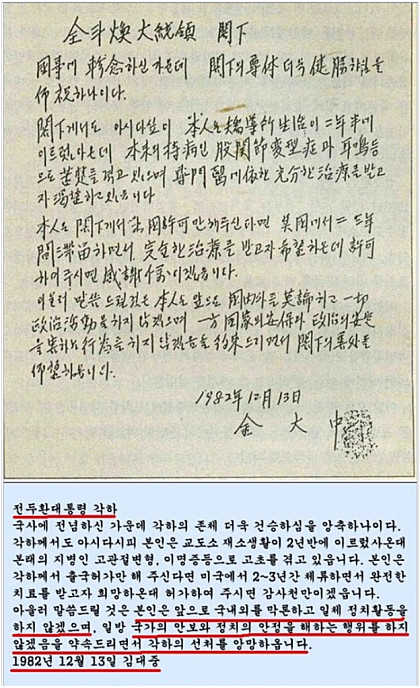 全斗煥大統領 閣下
國事에 軫念하신 가운데 閣下의 尊体 더욱 健勝하심을
仰祝하나이다.
閣下께서도 아시다싶이 本人은 矯導所生活이 二年半에
이르렀아온데 本来의 持病인 股関節変型症과 耳鳴等
으로 苦楚를 겪고 있으며 専門醫에 依한 充分한 治療를 받고
자 渴望하고 있읍니다
本人은 閣下께서 出國許可만 해주신다면 美國에서 二, 三年
間 滯留하면서 完全한 治療를 받고자 希望하온데 許可
하여 주시면 感謝千萬이겠읍니다.
아울러 말씀드릴것은 本人은 앞으로 國内外를 莫論하고 一切
政治活動을 하지 않겠으며 一方 國家의 安保와 政治의 安定
을 害하는 行為를 하지 않겠음을 約束드리면서 閣下의 善処를
仰望하옵니다.
1982年 12月 13日
金 大 中
전두환대통령 각하
국사에 전념하신 가운데 각하의 존체 더욱 건승하심을 앙축하나이다.
각하께서도 아시다시피 본인은 교도소 재소생활이 2년반에 이르렀사온데
본래의 지병인 고관절변형, 이명증등으로 고초를 겪고 있읍니다. 본인은
각하께서 출국허가만 해 주신다면 미국에서 2~3년간 체류하면서 완전한
치료를 받고자 희망하온데 허가하여 주시면 감사천만이겠읍니다.
아울러 말씀드릴 것은 본인은 앞으로 국내외를 막론하고 일체 정치활동을
하지 않겠으며, 일방 국가의 안보와 정치의 안정을 해하는 행위를 하지
않겠음을 약속드리면서 각하의 선처를 앙망하옵니다.
1982년 12월 13일 김대중